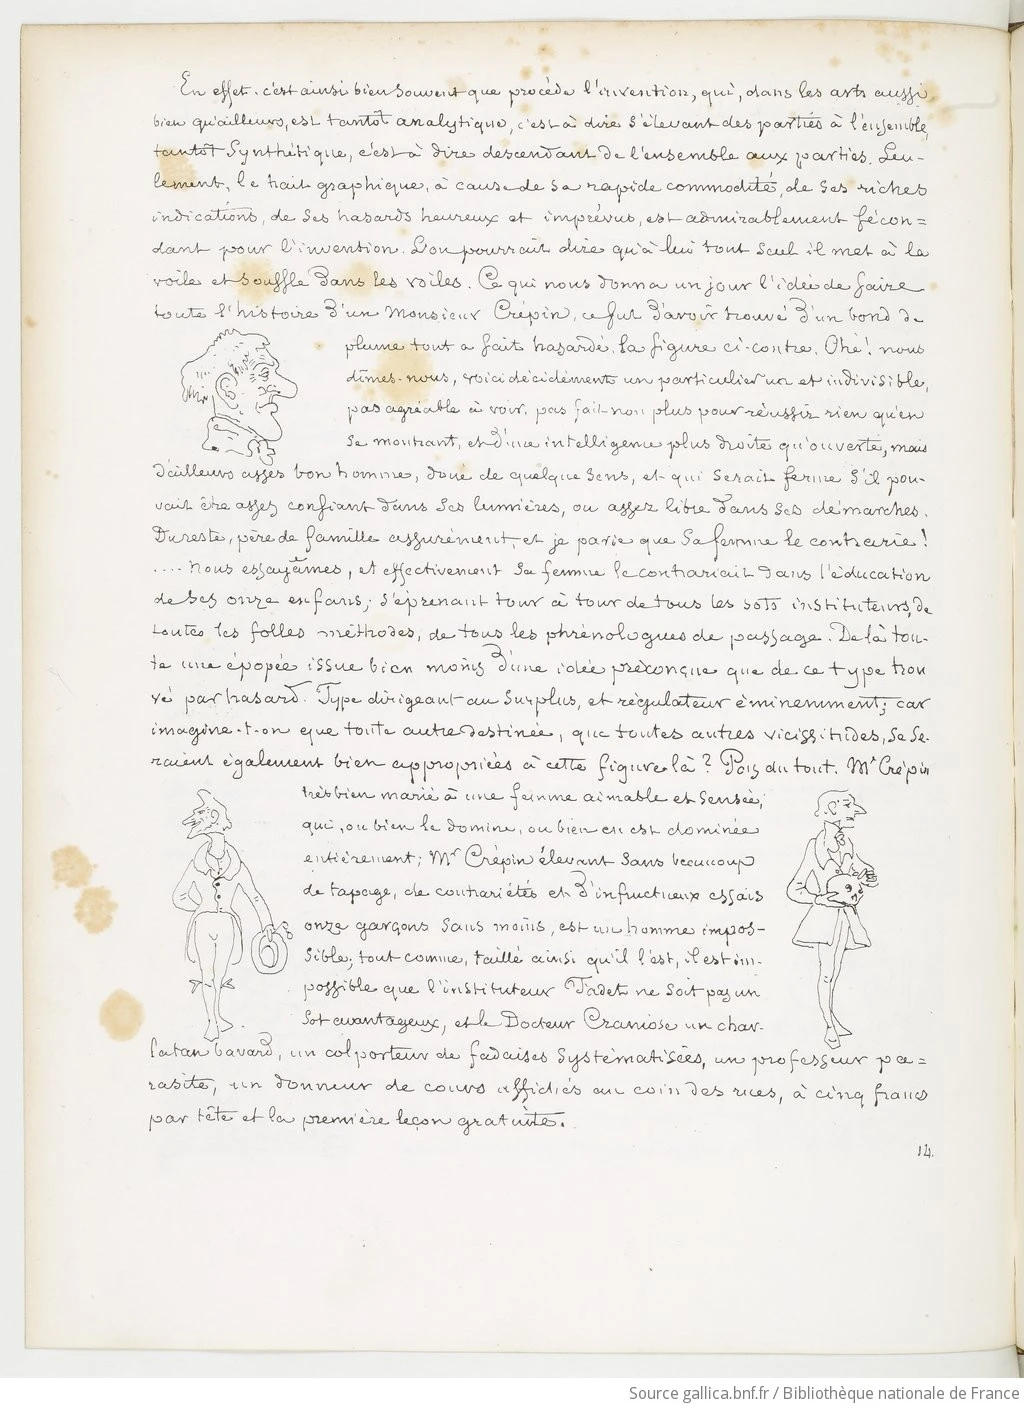 En effet, c'est ainsi bien souvent que procède l'invention, qui, dans les arts aussi
bien qu'ailleurs, est tantôt analytique, c'est à dire s'élevant des parties à l'ensemble,
tantôt synthétique, c'est à dire descendant de l'ensemble aux parties. Seu-
lement, le trait graphique, à cause de sa rapide commodité, de ses riches
indications, de ses hasards heureux et imprévus, est admirablement fécon=
dant pour l'invention. L'on pourrait dire qu'à lui tout seul il met à la
voile et souffle dans les voiles. Ce qui nous donna un jour l'idée de faire
toute l'histoire d'un Monsieur Crépin, ce fut d'avoir trouvé d'un bond de
plume tout a fait hasardé, la figure ci-contre. Ohé! nous
dîmes-nous, voici décidément un particulier un et indivisible,
pas agréable à voir, pas fait non plus pour réussir rien qu'en
se montrant, et d'une intelligence plus droite qu'ouverte, mais
d'ailleurs assez bon homme, doué de quelque sens, et qui serait ferme s'il pou-
vait être assez confiant dans ses lumières, ou assez libre dans ses démarches.
Du reste, père de famille assurément, et je parie que sa femme le contrarie!
.... Nous essayâmes, et effectivement sa femme le contrariait dans l'éducation
de ses onze enfans, s'éprenant tour à tour de tous les sots instituteurs, de
toutes les folles méthodes, de tous les phrénologues de passage. De là tou-
te une épopée issue bien moins d'une idée préconçue que de ce type trou
vé par hasard. Type dirigeant au surplus, et régulateur éminemment; car
imagine-t-on que toute autre destinée, que toutes autres vicissitudes, se se-
raient également bien appropriées à cette figure là? Pas du tout. Mr Crépin
très bien marié à une femme aimable et sensée,
qui, ou bien le domine, ou bien en est dominée
entièrement; Mr Crépin élevant sans beaucoup
de tapage, de contrariétés et d'infructueux essais
onze garçons sans moins, est un homme impos-
sible; tout comme, taillé ainsi qu'il l'est, il est im-
possible que l'instituteur Fadet ne soit pas un
sot avantageux, et le Docteur Craniose un char-
latan bavard, un colporteur de fadaises systématisées, un professeur pa=
rasite, un donneur de cours affichés au coin des rues, à cinq francs
par tête et la première leçon gratuite.
14.
Source gallica.bnf.fr / Bibliothèque nationale de France